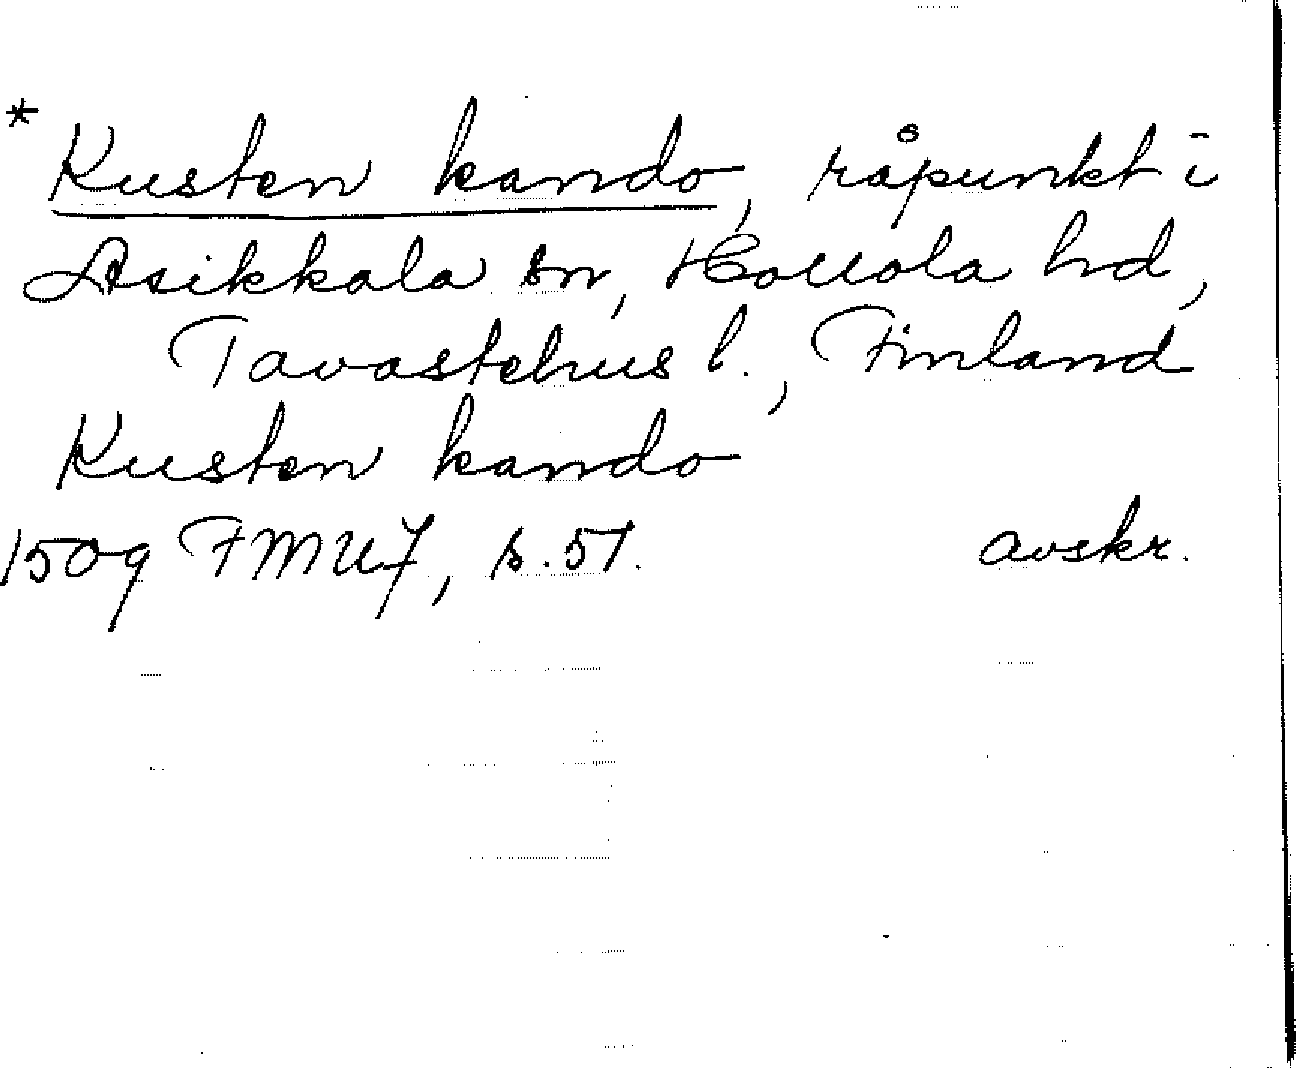 * Kusten kando, råpunkt i
Asikkala sn, Hollola hd,
Tavastehus l., Finland
Kusten kando
1509 FMU7, s. 51. avskr.